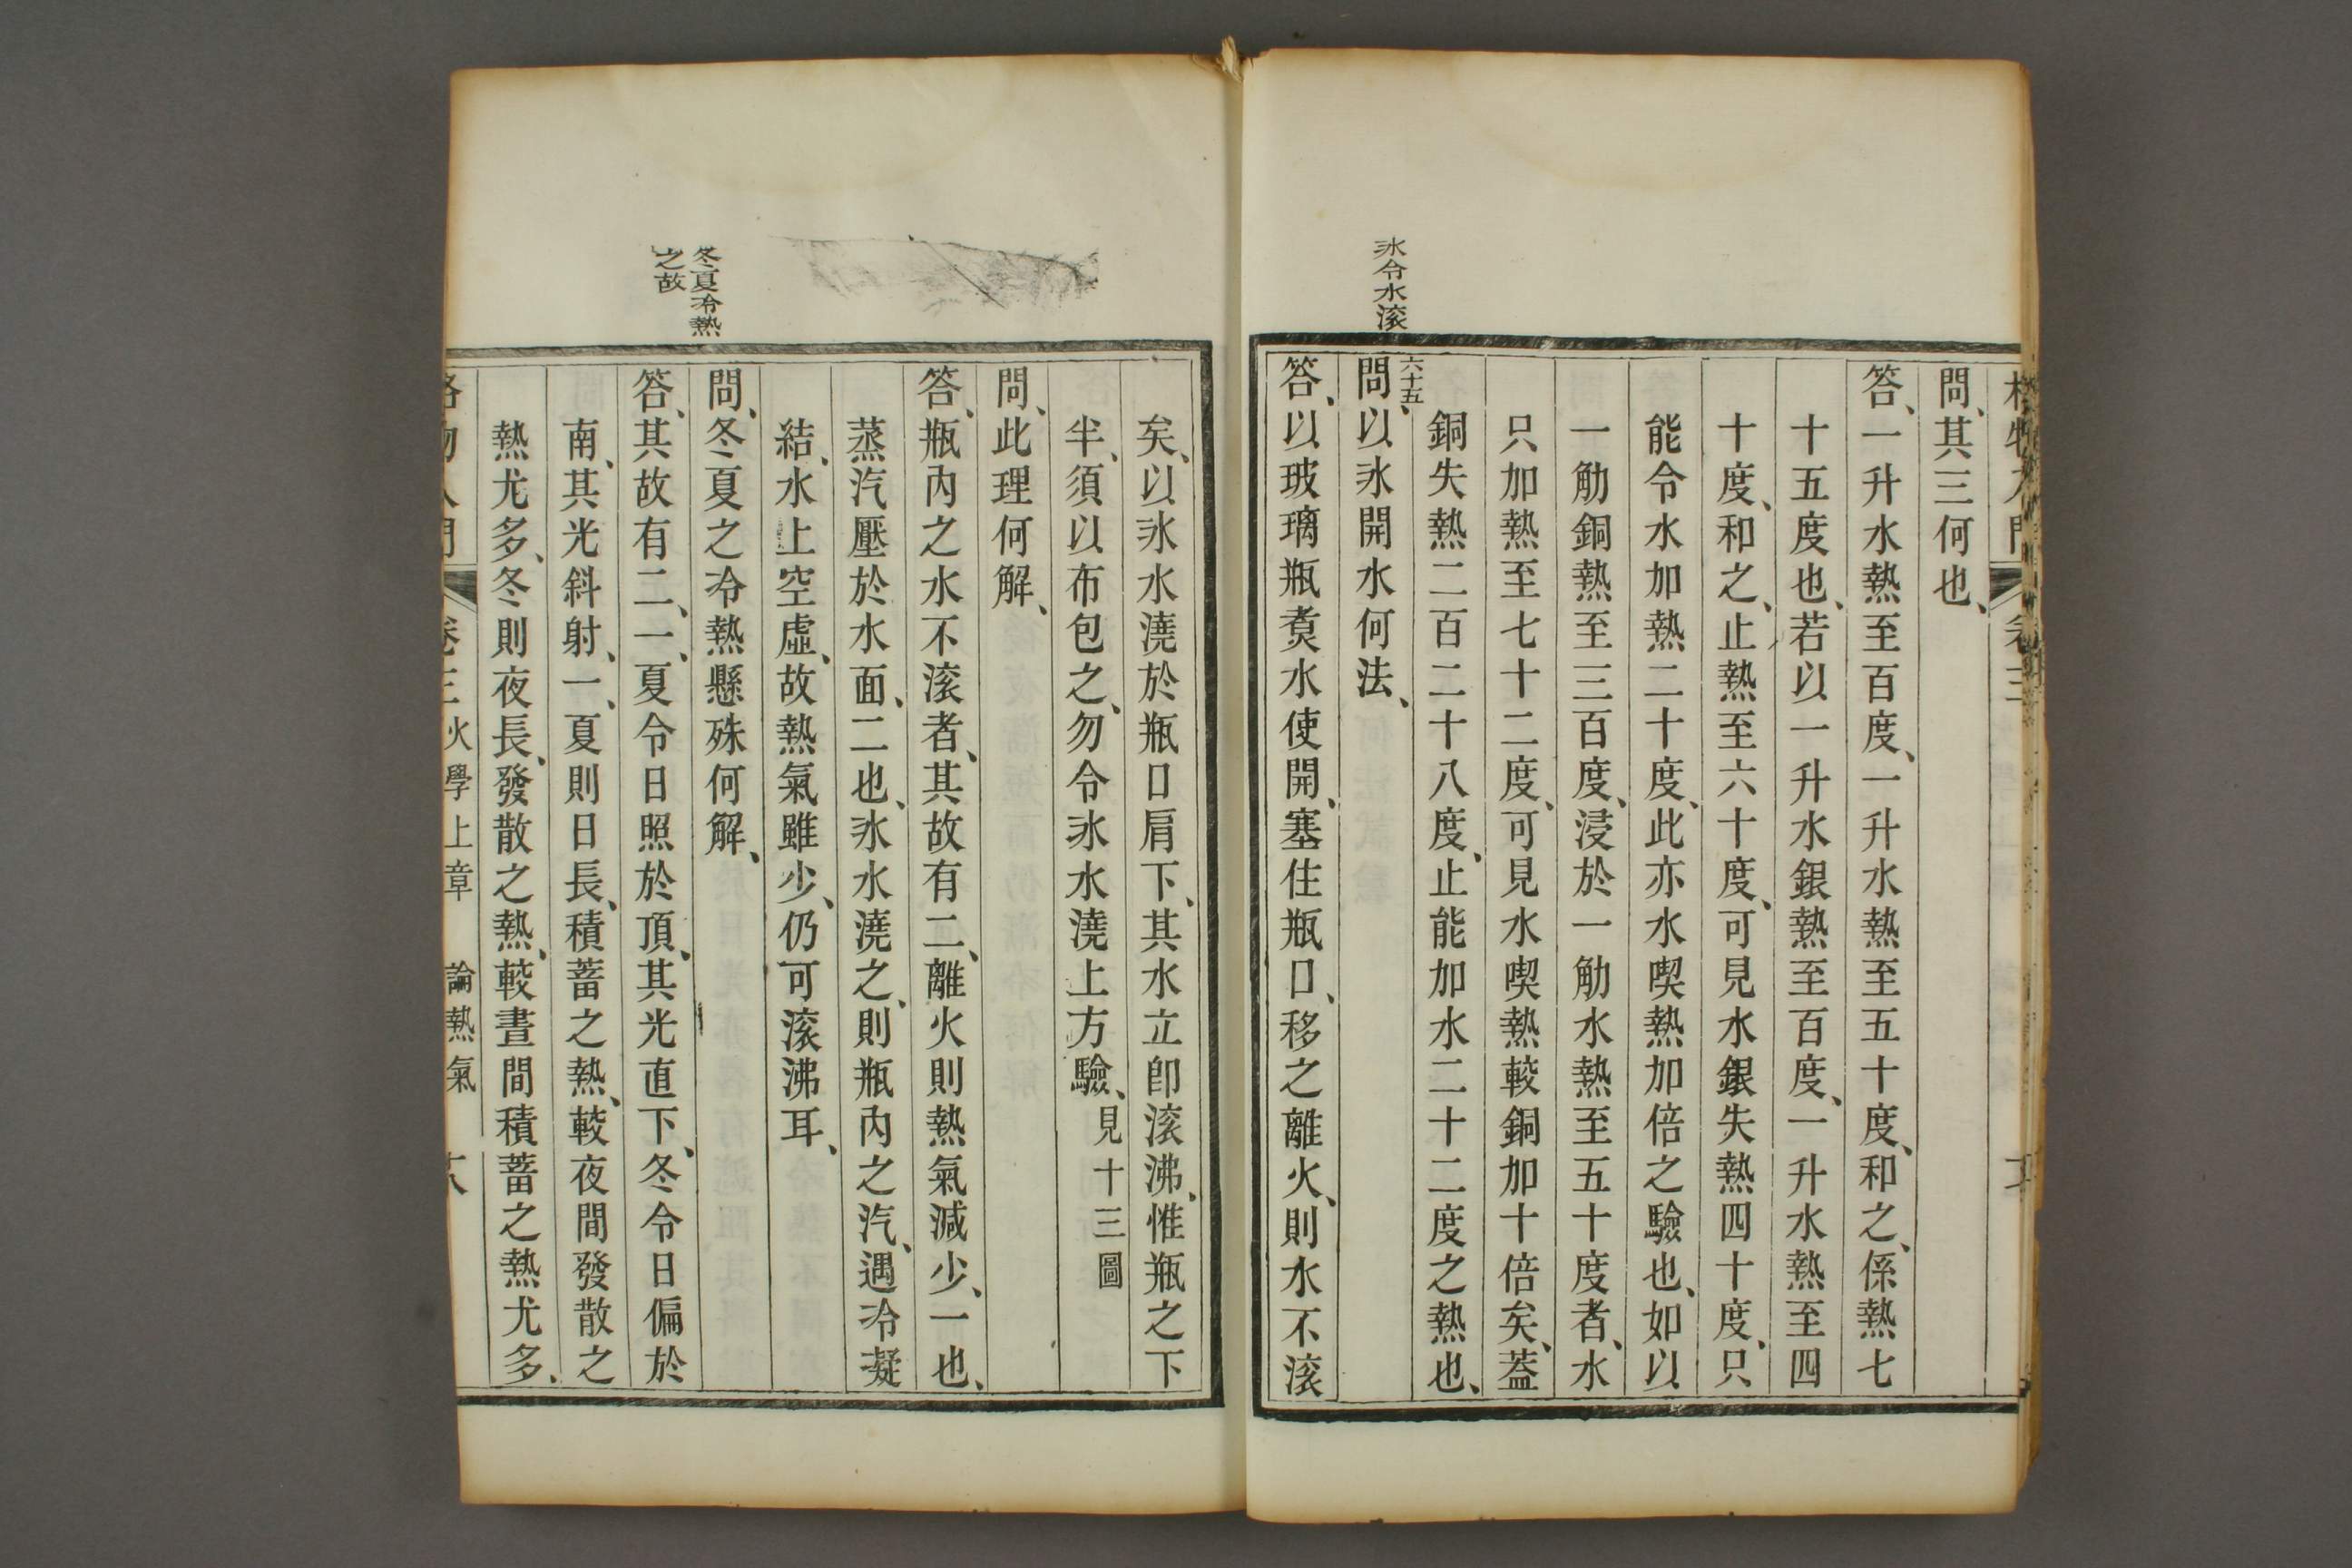 格物入門 卷三
問、其三何也、
答、一升水熱至百度、一升水熱至五十度、和之、係熱七
十五度也、若以一升水銀熱至百度、一升水熱至四
十度、和之、止熱至六十度、可見水銀失熱四十度、只
能令水加熱二十度、此亦水喫熱加倍之驗也、如以
一觔銅熱至三百度、浸於一觔水熱至五十度者、水
只加熱至七十二度、可見水喫熱較銅加十倍矣、蓋
銅失熱二百二十八度、止能加水二十二度之熱也、
氷令水滚
六十五
問、以氷開水何法、
答、以玻璃瓶煑水使開、塞住瓶口、移之離火、則水不滚
矣、以氷水澆於瓶口肩下、其水立卽滚沸、惟瓶之下
半、須以布包之、勿令氷水澆上方驗、見十三圖
問、此理何解、
答、瓶內之水不滚者、其故有二、離火則熱氣減少、一也、
蒸汽壓於水面、二也、氷水澆之、則瓶內之汽、遇冷凝
結、水上空虛、故熱氣雖少、仍可滚沸耳、
冬夏冷熱
之故
問、冬夏之冷熱懸殊何解、
答、其故有二、一、夏令日照於頂、其光直下、冬令日偏於
南、其光斜射、一、夏則日長、積蓄之熱、較夜間發散之
熱尤多、冬則夜長、發散之熱、較晝間積蓄之熱尤多、
格物入門 卷三 火學上章 論熱氣 十八